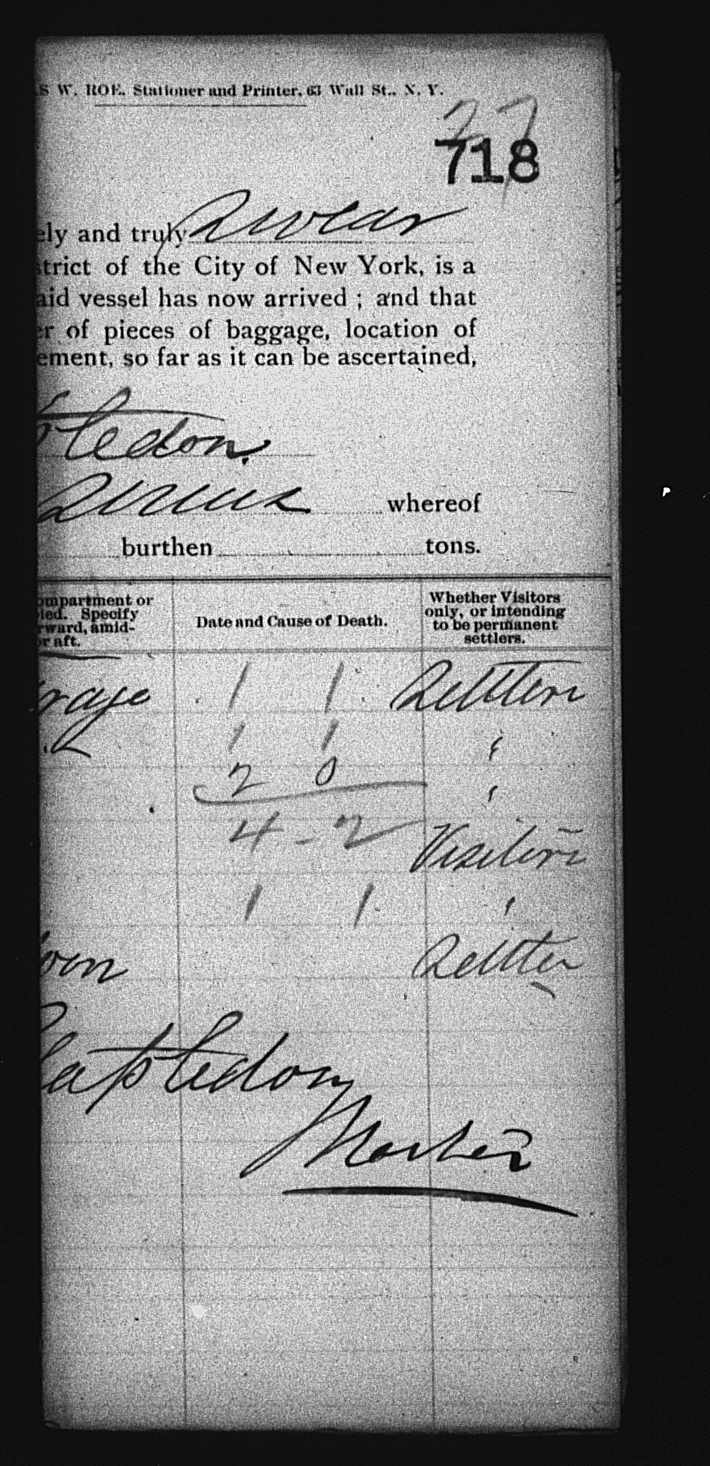 S W. ROE, Stationer and Printer, 63 Wall St., N. Y.
27
718
ely and truly swear
strict of the City of New York, is a
aid vessel has now arrived ; and that
er of pieces of baggage, location of
ement, so far as it can be ascertained,
stledon
Sirius whereof
burthen tons.
ompartment or
ied. Specify
rward, amid-
or aft.
Date and Cause of Death.
Whether Visitors
only, or intending
to be permanent
settlers.
rage 1 1 Settlers
1 1 "
2 0 "
4 - 2 Visitors
1 1 "
Settler
Master